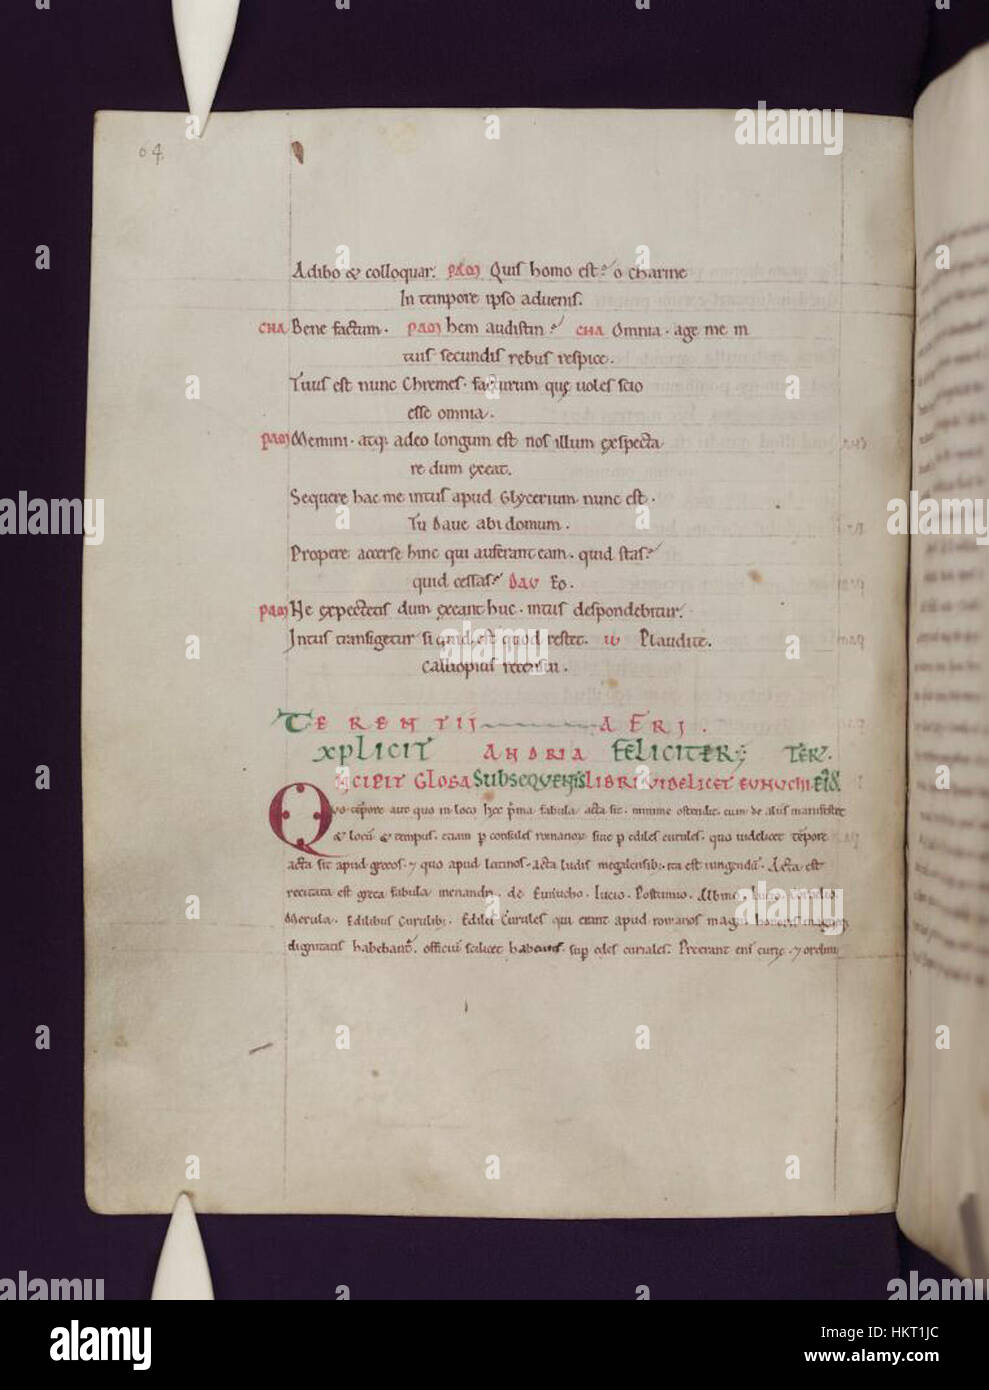 04
Adibo & colloquar. PAM Quis homo est? o charine
In tempore ipso aduenis.
CHA Bene factum. PAM hem audistin? CHA Omnia. age me in
tuis secundis rebus respice.
Tuus est nunc Chremes. facturum quę uoles scio
esse omnia.
PAM Memini. atq; adeo longum est nos illum expecta
re dum exeat.
Sequere hac me intus apud Glycerium nunc est.
Tu Daue abi domum.
Propere accerse hinc qui auferant eam. quid stas?
quid cessas? DAV Eo.
PAM Ne expectetis dum exeant huc. intus despondebitur.
Intus transigetur si quid est quod restet. ω Plaudite.
Calliopius recensui.
TERENTII AFRI
EXPLICIT ANDRIA FELICITER TER.
INCIPIT GLOSA SUBSEQUENTIS LIBRI VIDELICET EUNUCHI
Quo tēpore aut quo in loco hec p̄ma fabula acta sit. minime ostendit. cum de aliis manifestet
& loc & tempus. etiam p consules romanor siue p ediles curules. quo uidelicet tēpore
acta sit apud grecos. ⁊ quo apud latinos. Acta ludis megalensib; ita est iungendū. Acta est
recitata est greca fabula menandri. de Eunucho. Lucio. Postumio. Albino. Lucio. cornelio.
Merula. Edilibus Curulib;. Ediles Curules qui erant apud romanos magni honoris magneq;
dignitatis habebant. officiū scilicet habentes. sup edes curiales. Preerant eni curię. ⁊ ordini
alamy
a
Image ID: HKT1JC
www.alamy.com